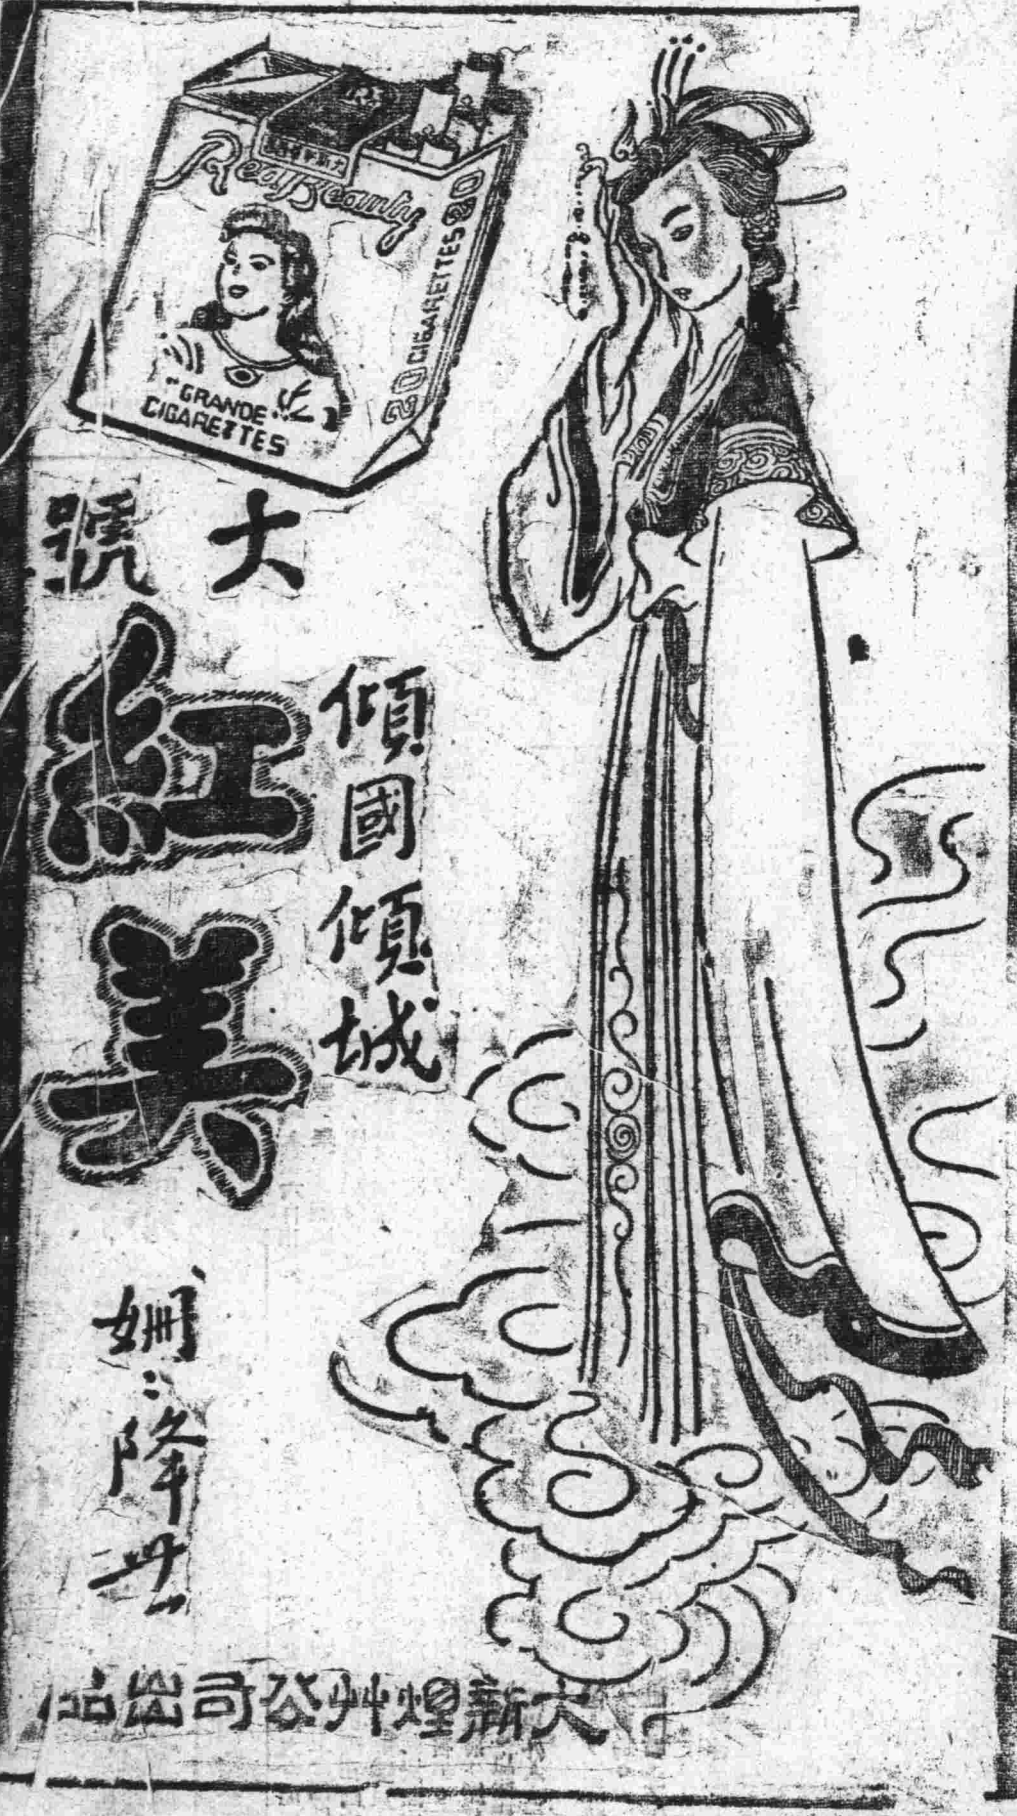 Real Beauty
20 CIGARETTES 20
"GRANDE"
CIGARETTES
大號
紅美
傾國傾城
姍姍降世
大新煙艸公司出品